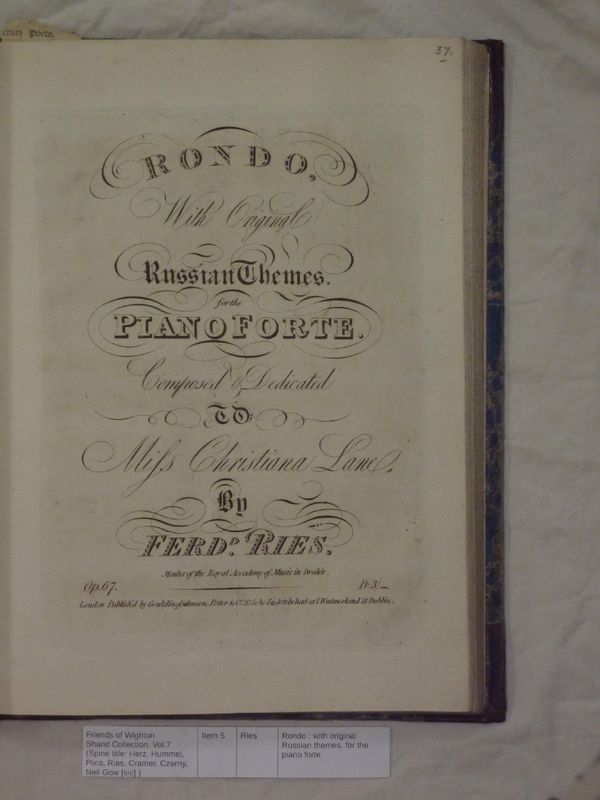 Poets.
37.
RONDO,
With Original
Russian Themes.
for the
PIANO FORTE.
Composed & Dedicated
TO
Miſs Christiana Lane,
By
FERD.D RIES.
Member of the Royal Accademy of Music in Sweden.
Op.67.
Pr. 3/_
London Publish'd by Goulding, D'Almaine, Potter & Co. 20, Soho Sq. & to be had at 7 Westmorland St. Dublin.
Friends of Wighton
Shand Collection, Vol.7
(Spine title: Herz, Hummel,
Pixis, Ries, Cramer, Czerny,
Neil Gow [sic] )
Item 5
Ries
Rondo : with original
Russian themes, for the
piano forte